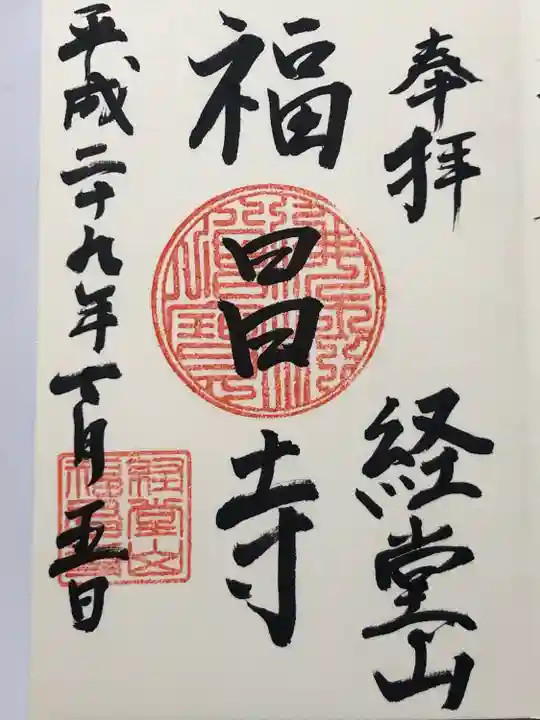 奉拝
経堂山
福昌寺
平成二十九年十一月五日
経堂山
福昌寺